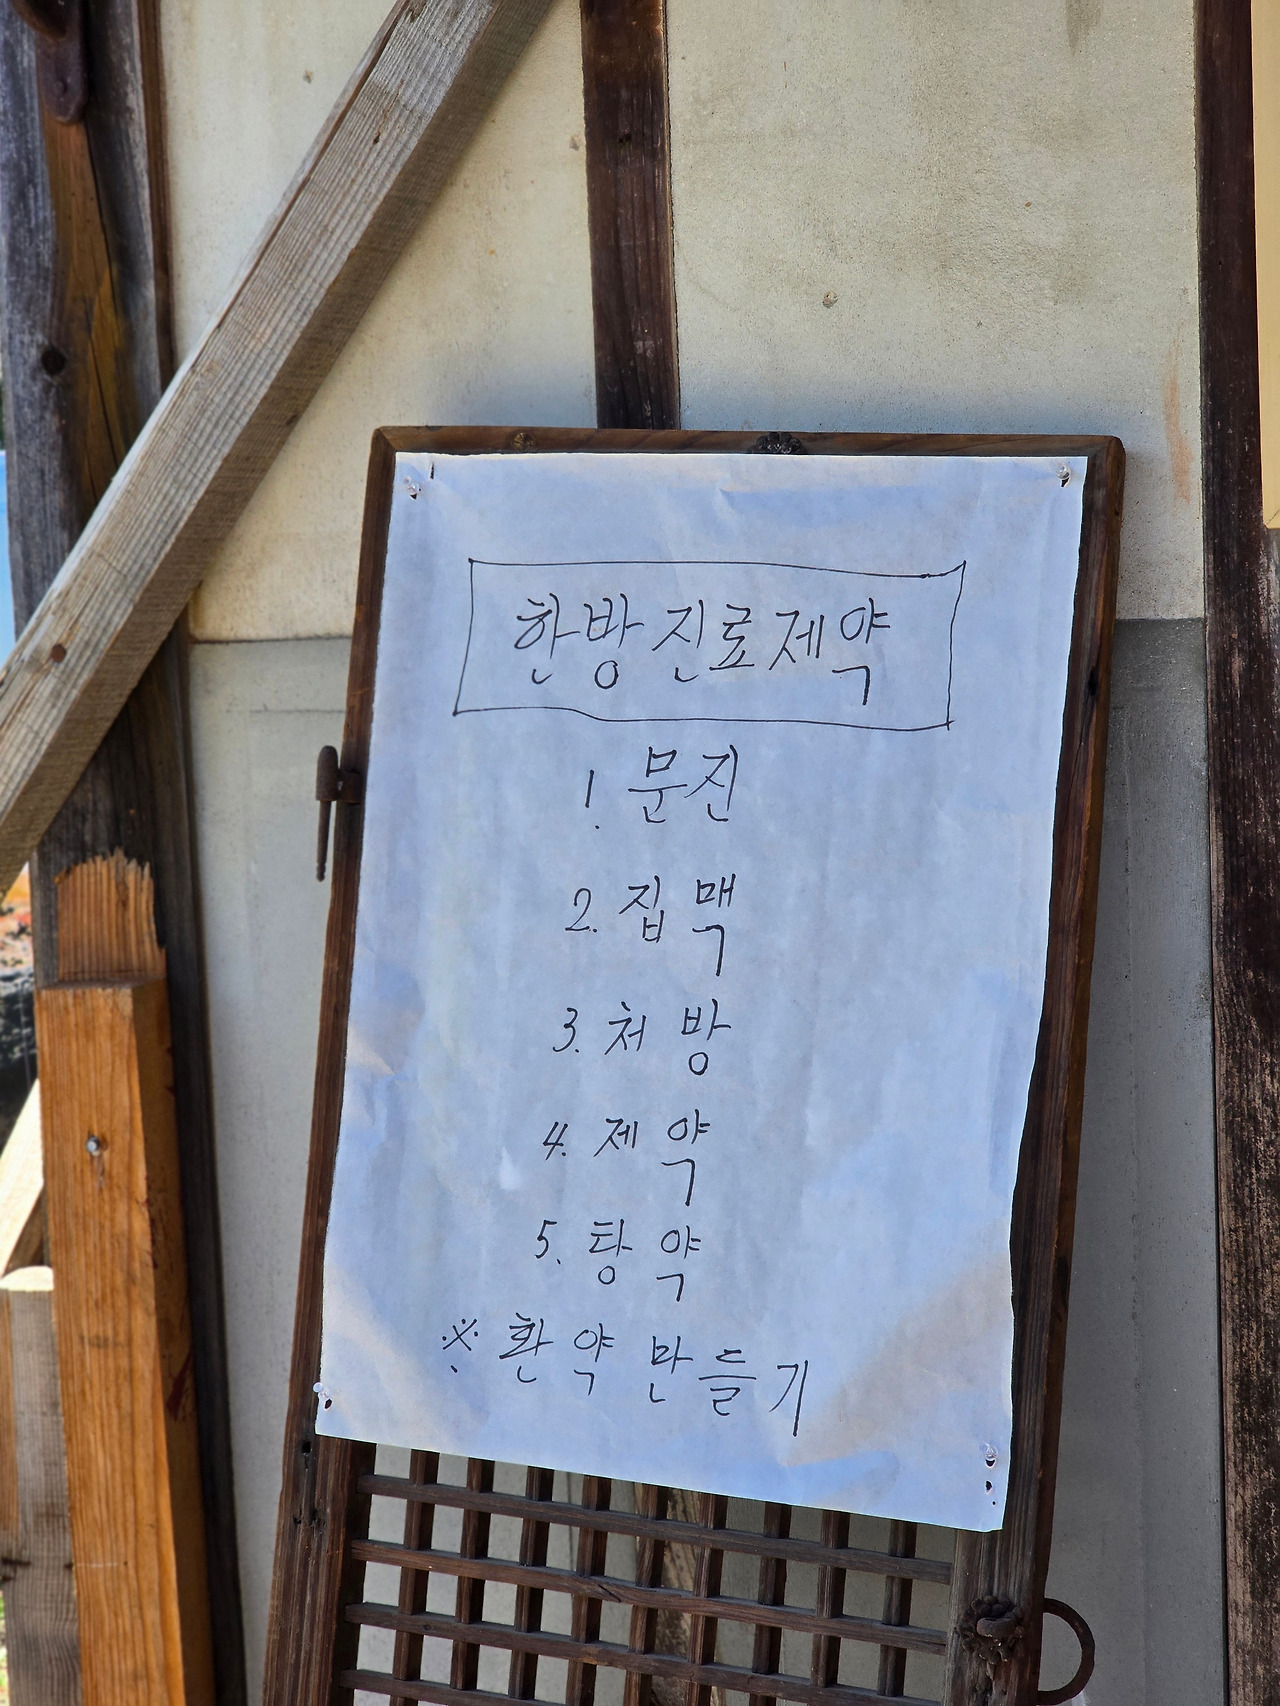 한방진료제약
1. 문진
2. 집맥
3. 처방
4. 제약
5. 탕약
※ 환약 만들기